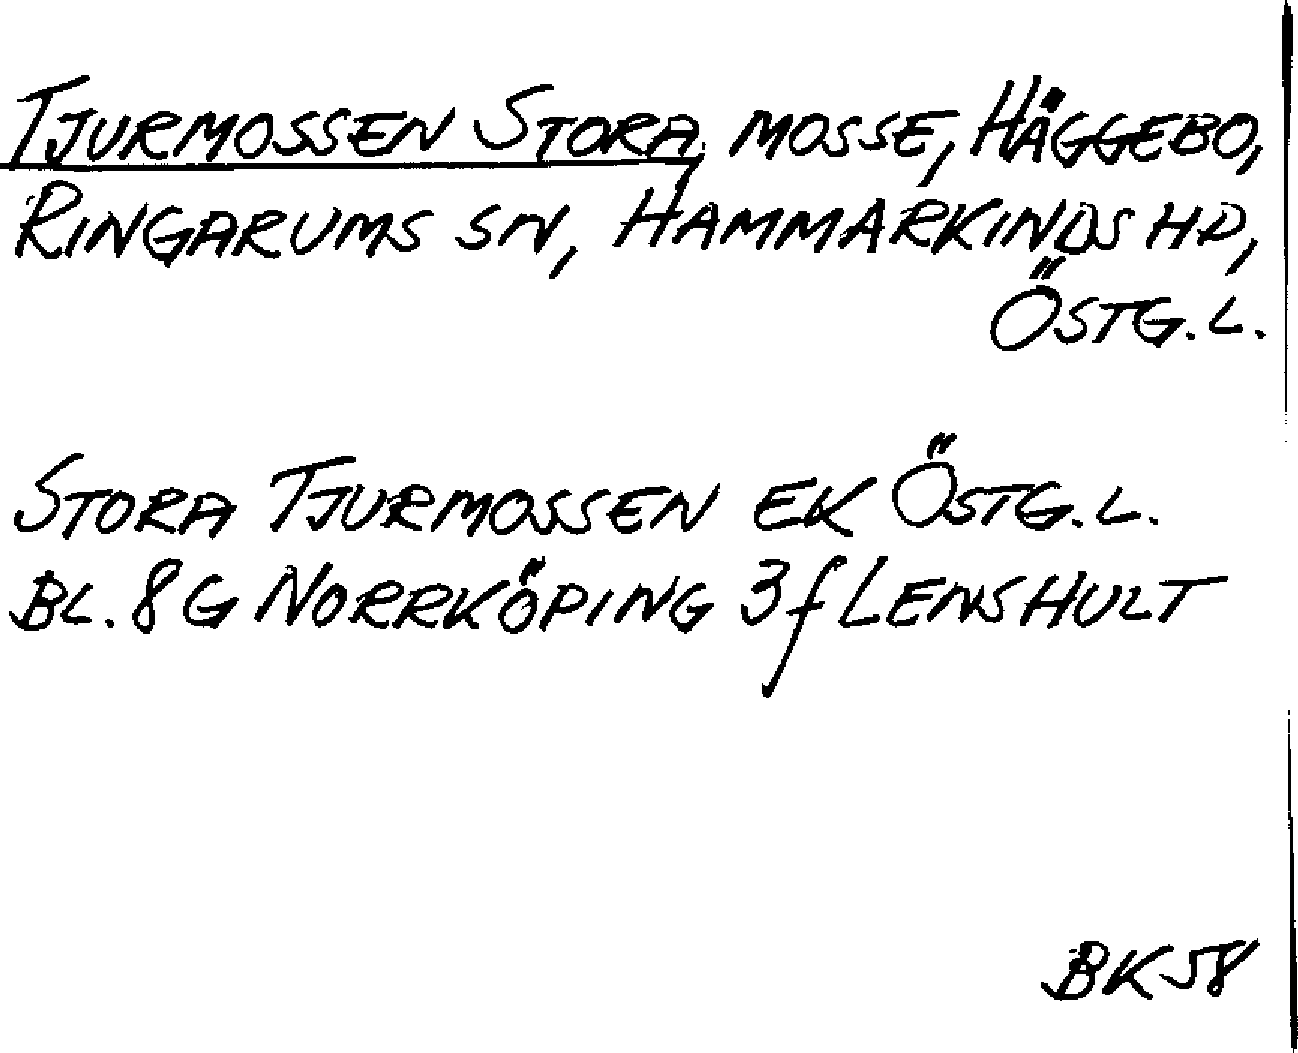 TJURMOSSEN STORA, MOSSE, HÄGGEBO,
RINGARUMS SN, HAMMARKINDS HD,
ÖSTG.L.
STORA TJURMOSSEN EK ÖSTG.L.
BL. 8G NORRKÖPING 3f LENSHULT
BK58